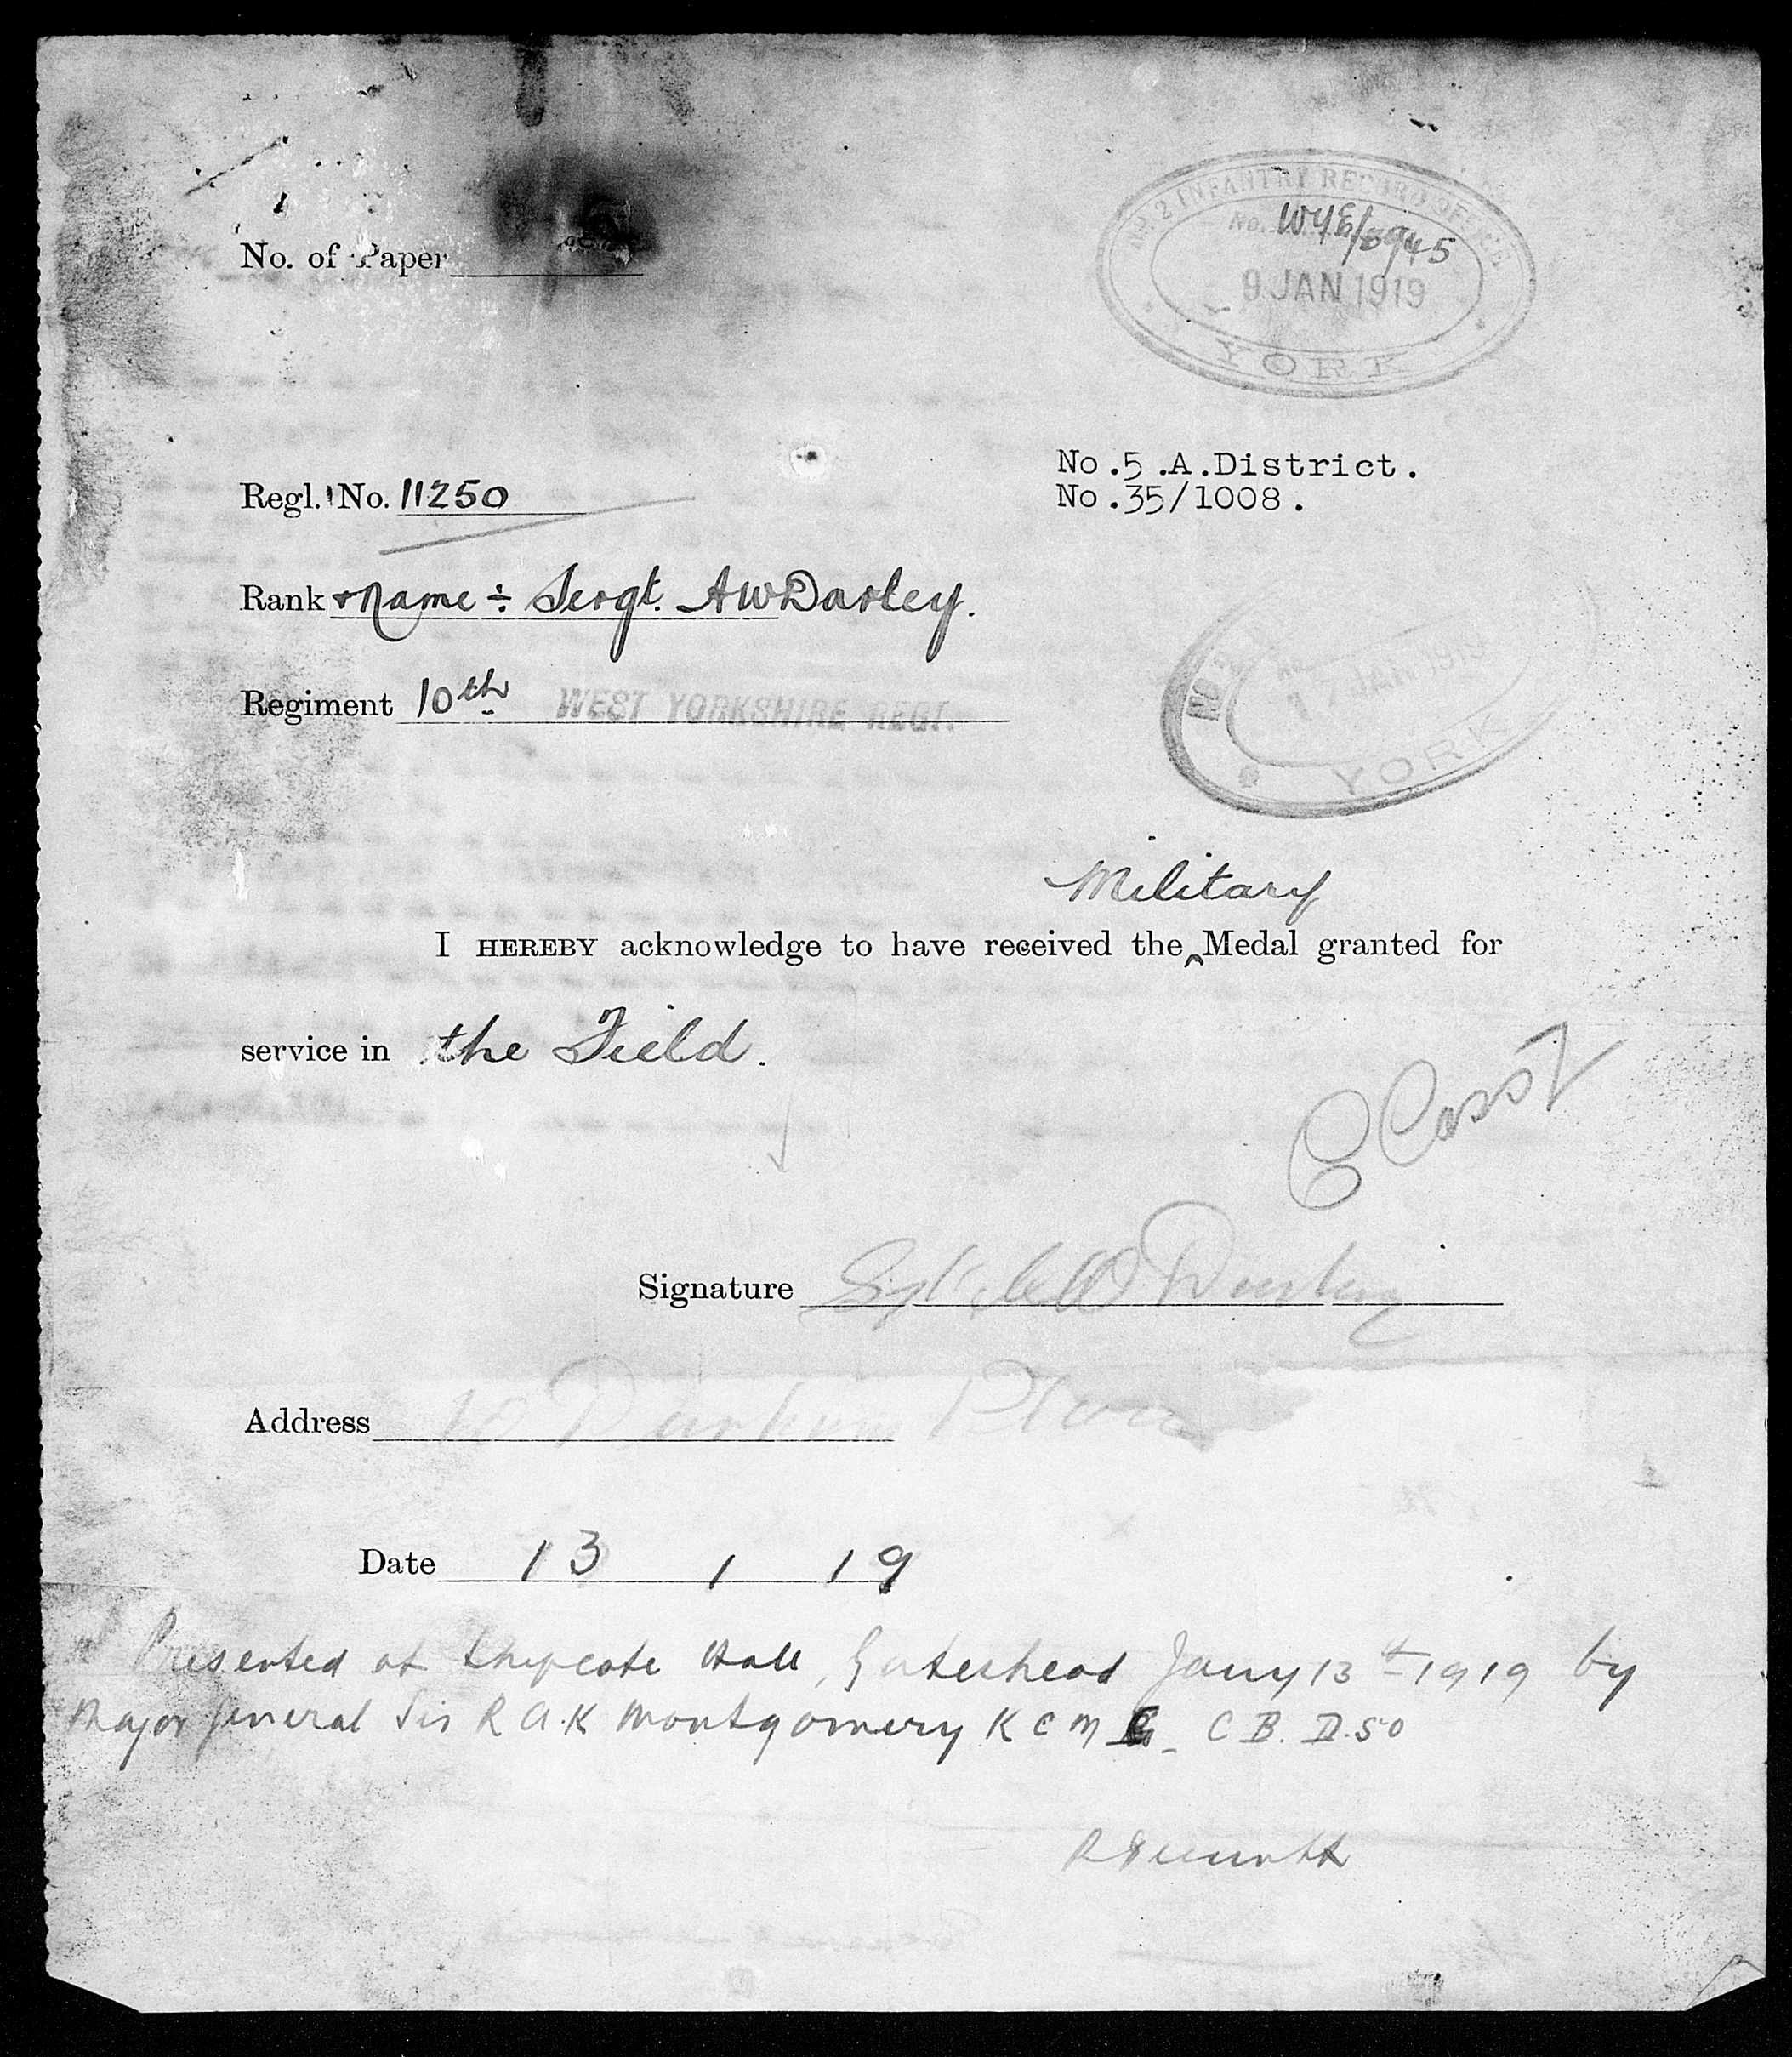 No. 2 INFANTRY RECORD OFFICE
No. WYE/8945
9 JAN 1919
YORK
No. of Paper
No.5.A.District.
No.35/1008.
Regl. No. 11250
Rank & Name ÷ Sergt. A W Darley.
Regiment 10th WEST YORKSHIRE REGT.
17 JAN 1919
YORK
Military
I HEREBY acknowledge to have received the ^ Medal granted for
service in the Field.
Class Z
Signature Sgt. A W Darley
Address Durham Place
Date 13 1 19
Presented at Shipcote Hall, Gateshead Jany 13th 1919 by
Major General Sir R A.K Montgomery K C M G. C B. D.S O